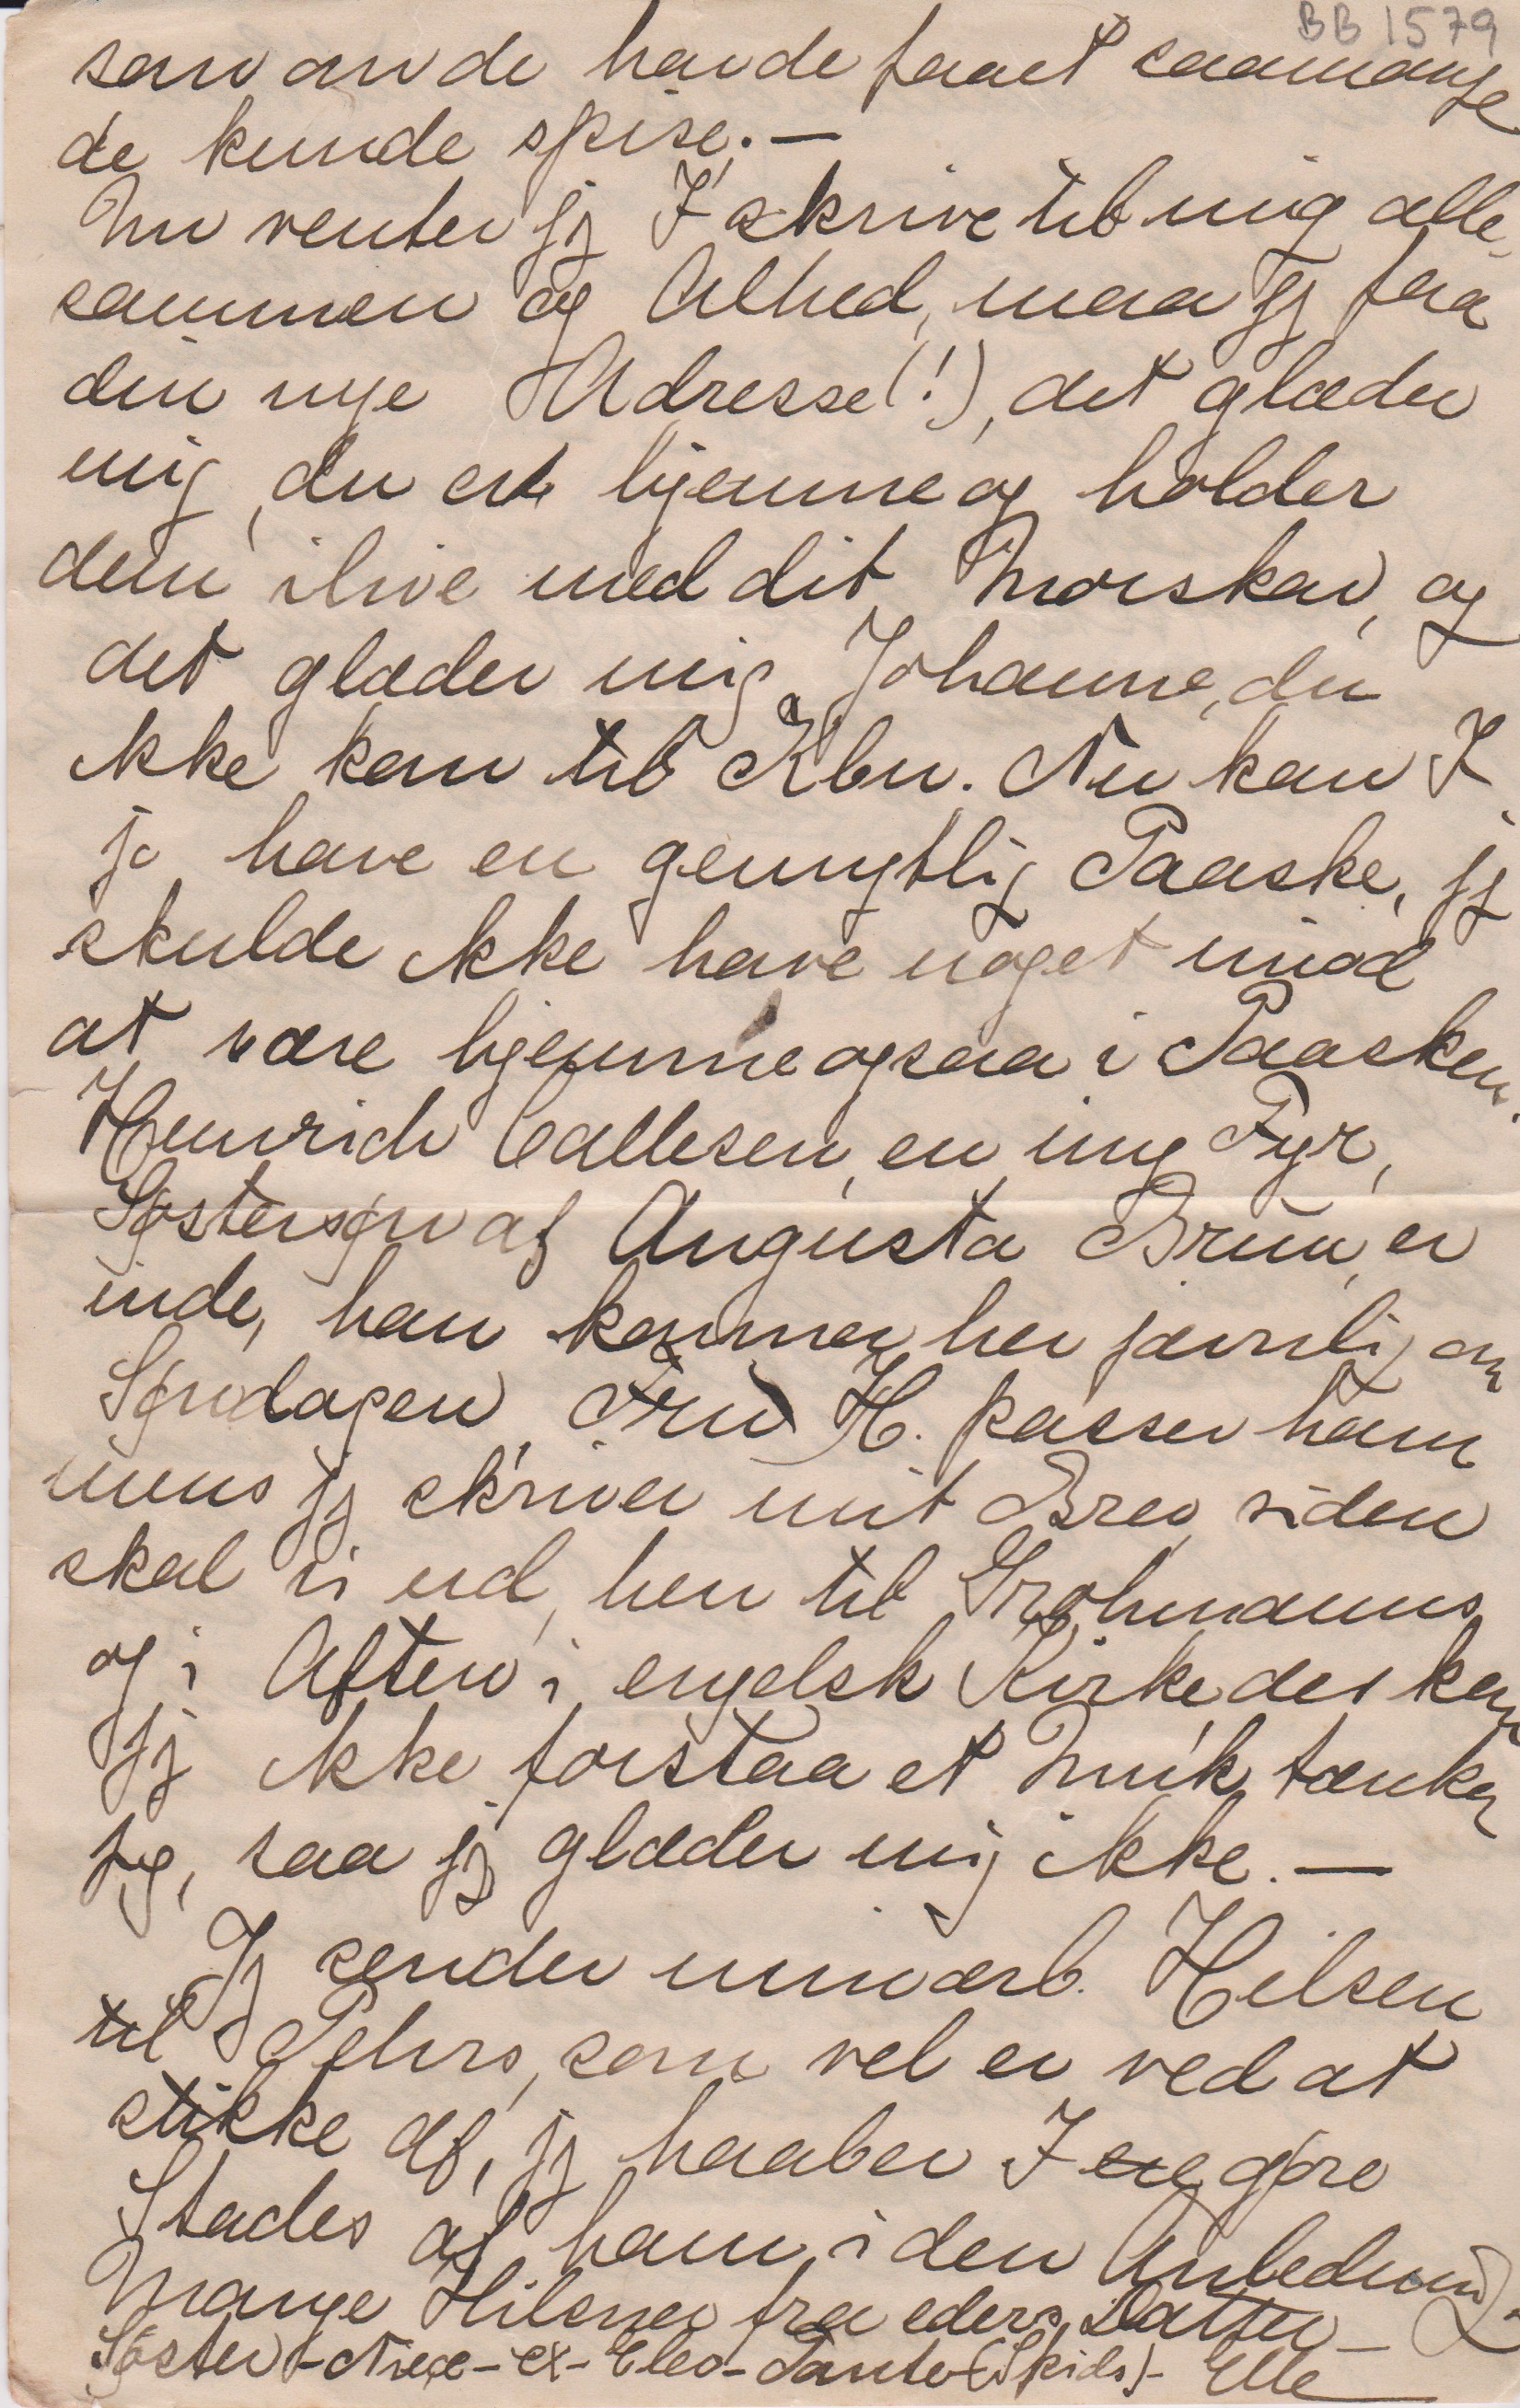 BB 1579
som om de havde faaet saamange
de kunde spise. —
Nu venter jeg I skrive til mig alle-
sammen og Alhed, maa jeg faa
din nye Adresse (!), det glæder
mig, du er hjemme og holder
dem ilive med dit Morskab, og
det glæder mig, Johanne, du
ikke kom til Kbn. Nu kan I
jo have en gemytlig Paaske, jeg
skulde ikke have noget imod
at være hjemme ogsaa i Paasken.
Heinrich Callesen, en ung Fyr,
Søstersøn af Augusta Bruun, er
inde, han kommer her jævnlig om
Søndagen. Fru H. passer ham
mens jeg skriver mit Brev, siden
skal vi ud, hen til Grohmanns
og i Aften i engelsk Kirke, der kan
jeg ikke forstaa et Muk, tænker
jeg, saa jeg glæder mig ikke. —
Jeg sender min ærb. Hilsen
til Pehrs, som vel er ved at
stikke af, jeg haaber I gøre
Stads af ham, i den Anledning.
Mange Hilsner fra eders Datter –
Søster – Niece – ex – Elev – Tante (Skids) – Elle